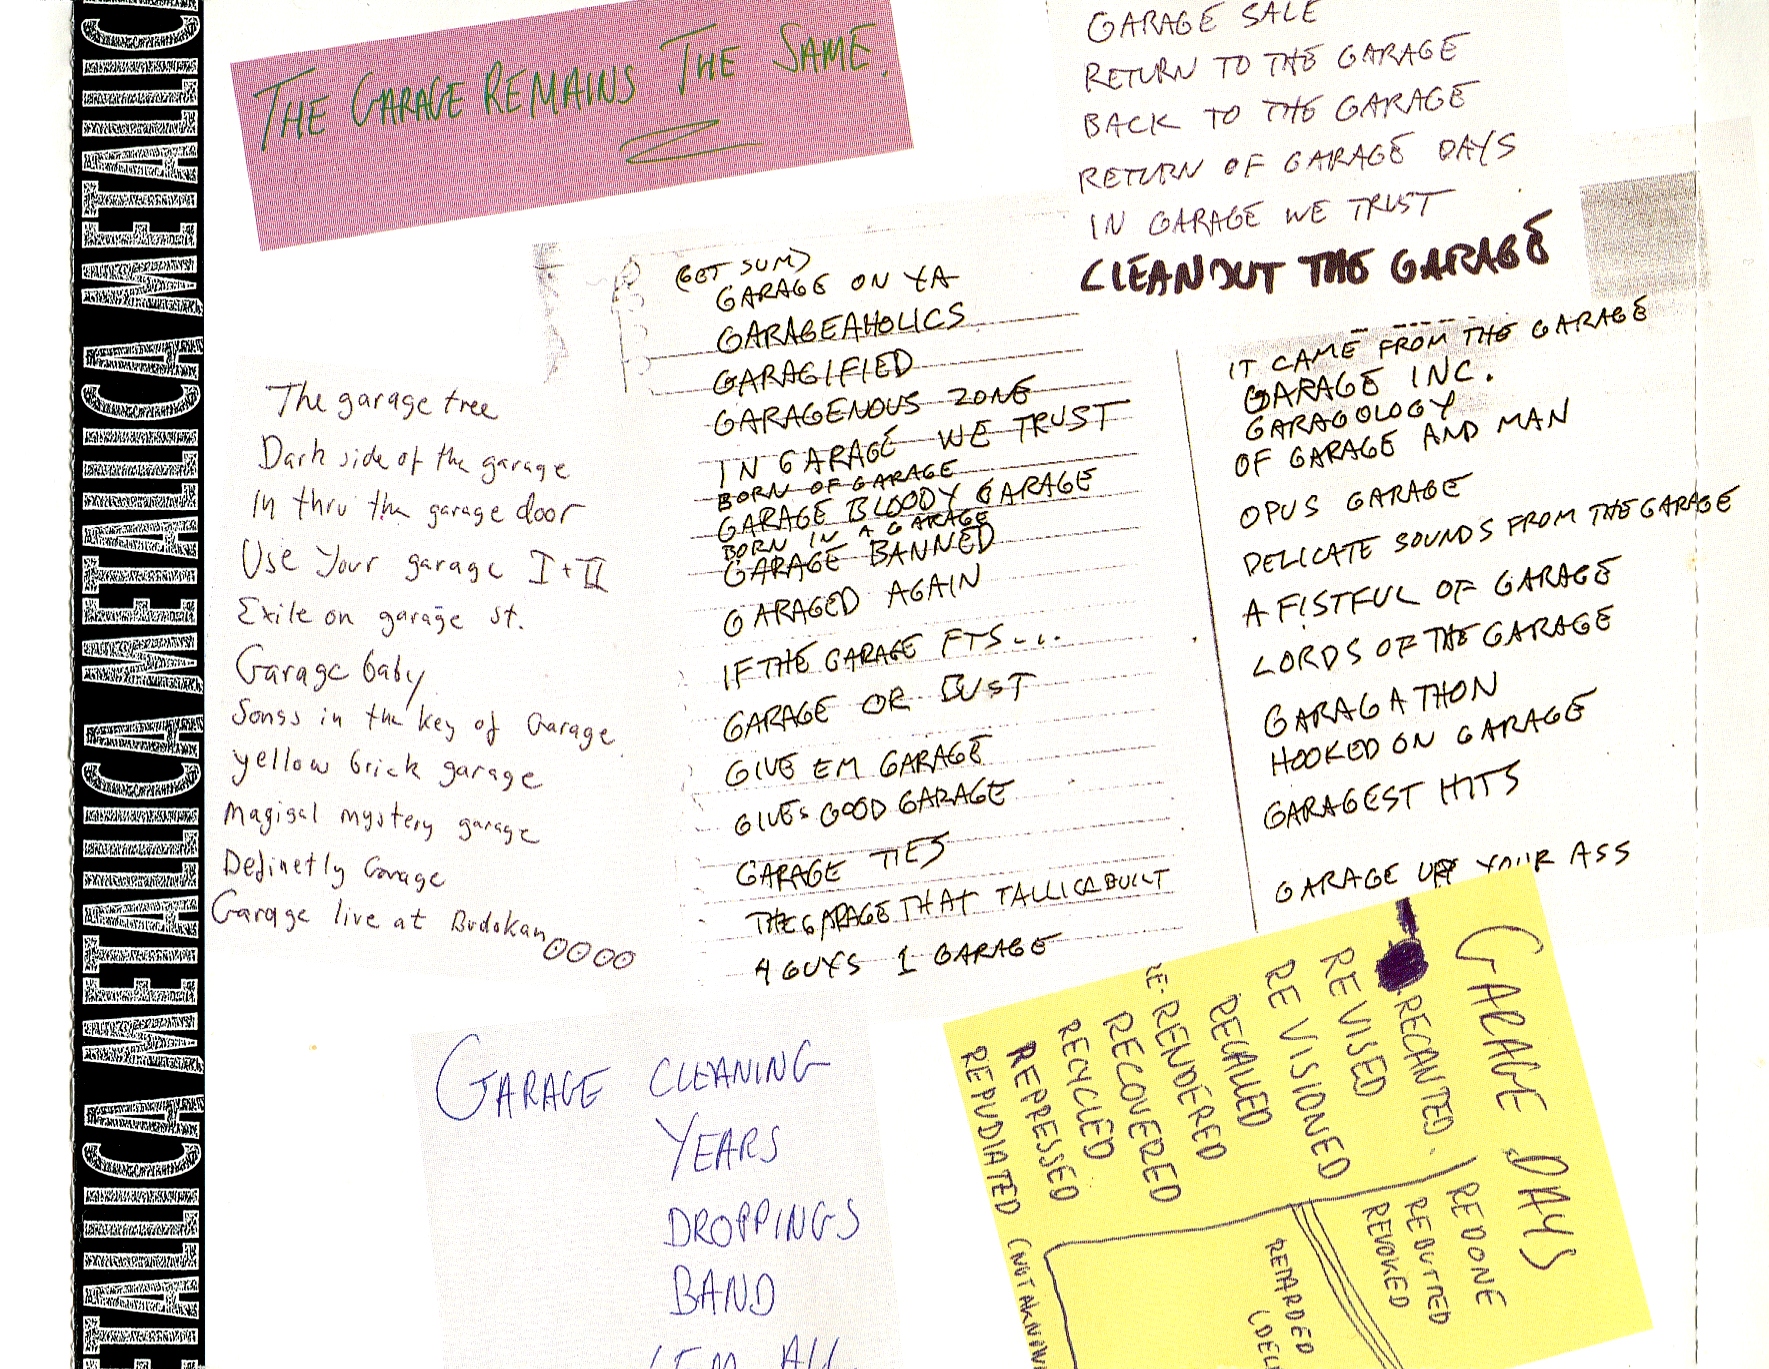 METALLICA METALLICA METALLICA METALLICA METALLICA
THE GARAGE REMAINS THE SAME.
GARAGE SALE
RETURN TO THE GARAGE
BACK TO THE GARAGE
RETURN OF GARAGE DAYS
IN GARAGE WE TRUST
CLEANOUT THE GARAGE
The garage tree
Dark side of the garage
In thru the garage door
Use Your garage I + II
Exile on garage st.
Garage baby
Songs in the key of Garage
yellow brick garage
Magical mystery garage
Definetly Garage
Garage live at Budokan
(GET SUM)
GARAGE ON YA
GARAGEAHOLICS
GARAGIFIED
GARAGENOUS ZONE
IN GARAGE WE TRUST
BORN OF GARAGE
GARAGE BLOODY GARAGE
BORN IN A GARAGE
GARAGE BANNED
GARAGED AGAIN
IF THE GARAGE FTS....
GARAGE OR BUST
GIVE EM GARAGE
GIVES GOOD GARAGE
GARAGE TIES
THE GARAGE THAT TALLICA BUILT
4 GUYS 1 GARAGE
IT CAME FROM THE GARAGE
GARAGE INC.
GARAGOLOGY
OF GARAGE AND MAN
OPUS GARAGE
DELICATE SOUNDS FROM THE GARAGE
A FISTFUL OF GARAGE
LORDS OF THE GARAGE
GARAGATHON
HOOKED ON GARAGE
GARAGEST HITS
GARAGE UP YOUR ASS
GARAGE CLEANING
YEARS
DROPPINGS
BAND
'EM ALL
GARAGE DAYS
RECANTED.
REVISED
REVISIONED
RECALLED
RE-RENDERED
RECOVERED
RECYCLED
REPRESSED
REPUDIATED (NOT
REDONE
REVOKED